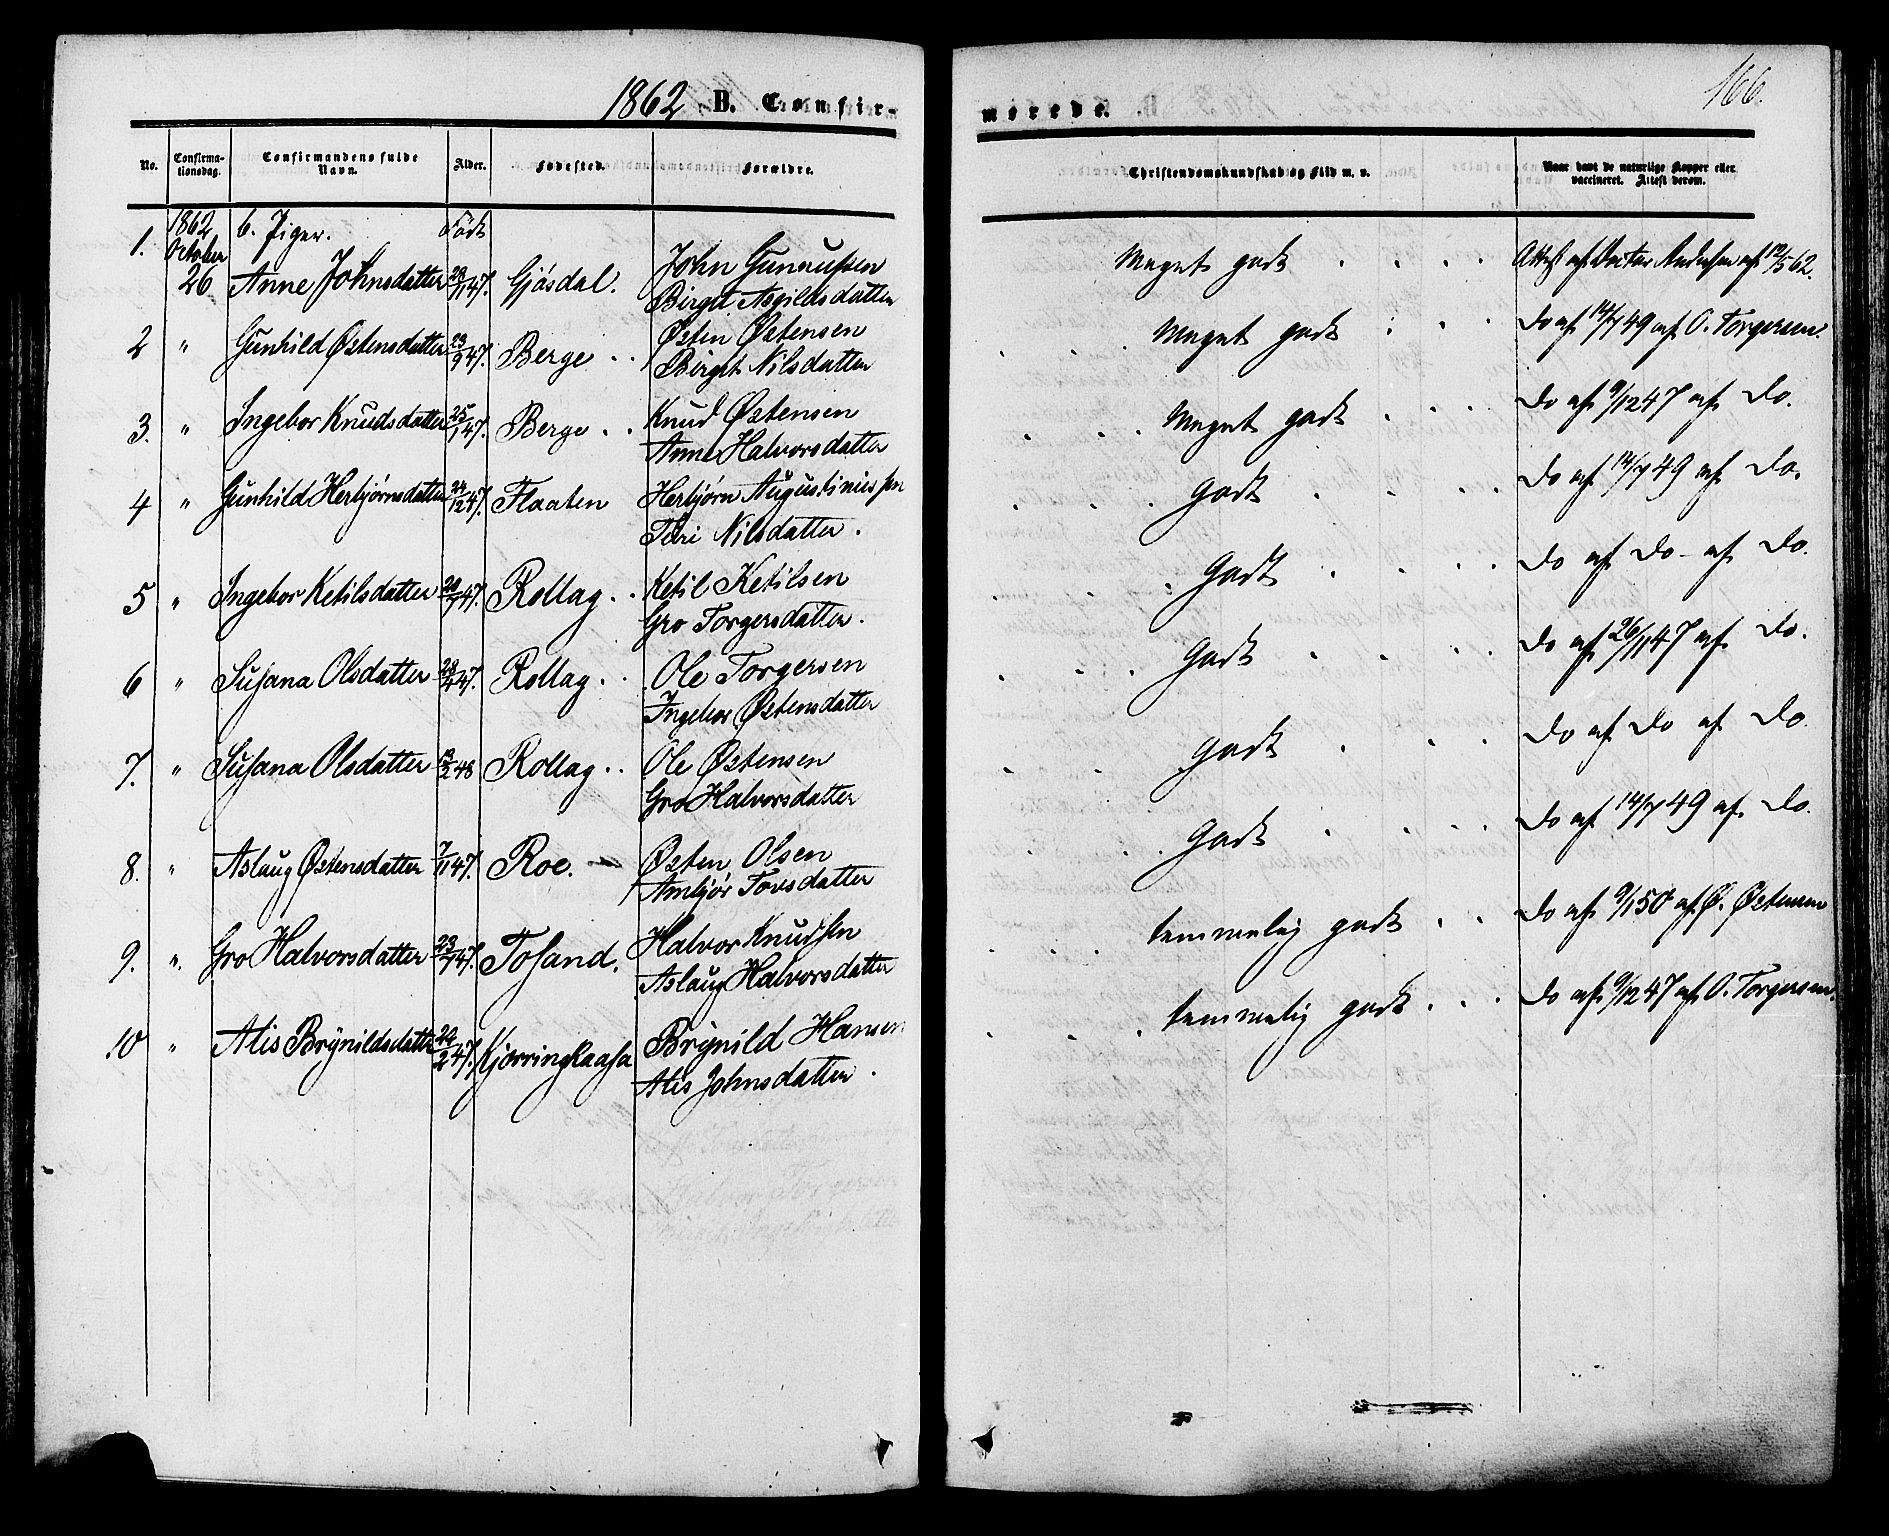 1862 B. Confir-
merede.
166.
No. Confirma-tionsdag. Confirmandens fulde Navn. Alder. Fødested. Forældre. Christendomskundskab og Flid m. v. Naar havt de naturlige Kopper eller vaccineret. Attest derom.
1862 b. Piger. Født
1. October 26 Anne Johnsdatter 47. Gjøsdal. John Gunnufsen Meget godt Attest af Doctor Andersen af 12/5 62.
Birgit Asgildsdatter
2 " Gunhild Østensdatter 23/9 47. Berge Østen Østensen Meget godt Do af 14/7 49 af O. Torgersen.
Birgit Nilsdatter
3. " Ingebor Knudsdatter 25/1 47. Berge Knud Østensen Meget godt Do af 9/12 47 af Do.
Anne Halvorsdatter
4 " Gunhild Herbjørnsdatter 24/12 47. Flaaten Herbjørn Augustiniussen Godt Do af 14/7 49 af Do.
Turi Nilsdatter.
5 " Ingebor Ketilsdatter 20/7 47. Rollag Ketil Ketilsen Godt Do af Do - af Do.
Gro Torgersdatter.
6 " Susana Olsdatter 47. Rollag Ole Torgersen Godt Do af 26/11 47 af Do.
Ingebor Østensdatter
7. " Susana Olsdatter 13/2 48 Rollag Ole Østensen Godt Do af Do af Do.
Gro Halvorsdatter
8. " Aslaug Østensdatter 7/11 47. Roe. Østen Olsen Godt Do af 14/7 49 af Do.
Ambjør Tovsdatter
9. " Gro Halvorsdatter 23/7 47. Tosand. Halvor Knudsen temmelig godt Do af 9/1 50 af Ø. Østensen
Aslaug Halvorsdatter
10 " Alis Brynildsdatter 22/2 47. Kjørringkaasa Brynild Hansen temmelig godt Do af 9/12 47 af O. Torgersen.
Alis Johnsdatter.